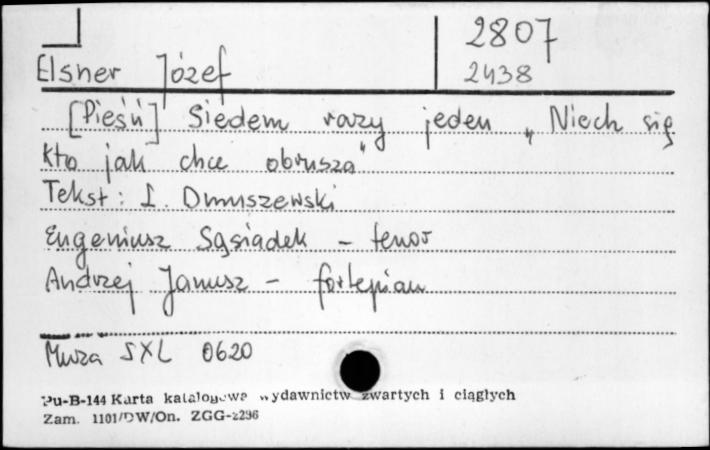 2807
Elsner Józef
2438
[Pieśń] Siedem razy jeden „Niech się
kto jak chce obrusza"
Tekst: L. Dmuszewski
Eugeniusz Sąsiadek - tenor
Andrzej Janusz - fortepian
Muza SXL 0620
Pu-B-144 Karta katalogowa wydawnictw zwartych i ciągłych
Zam. 1101/DW/On. ZGG-2296